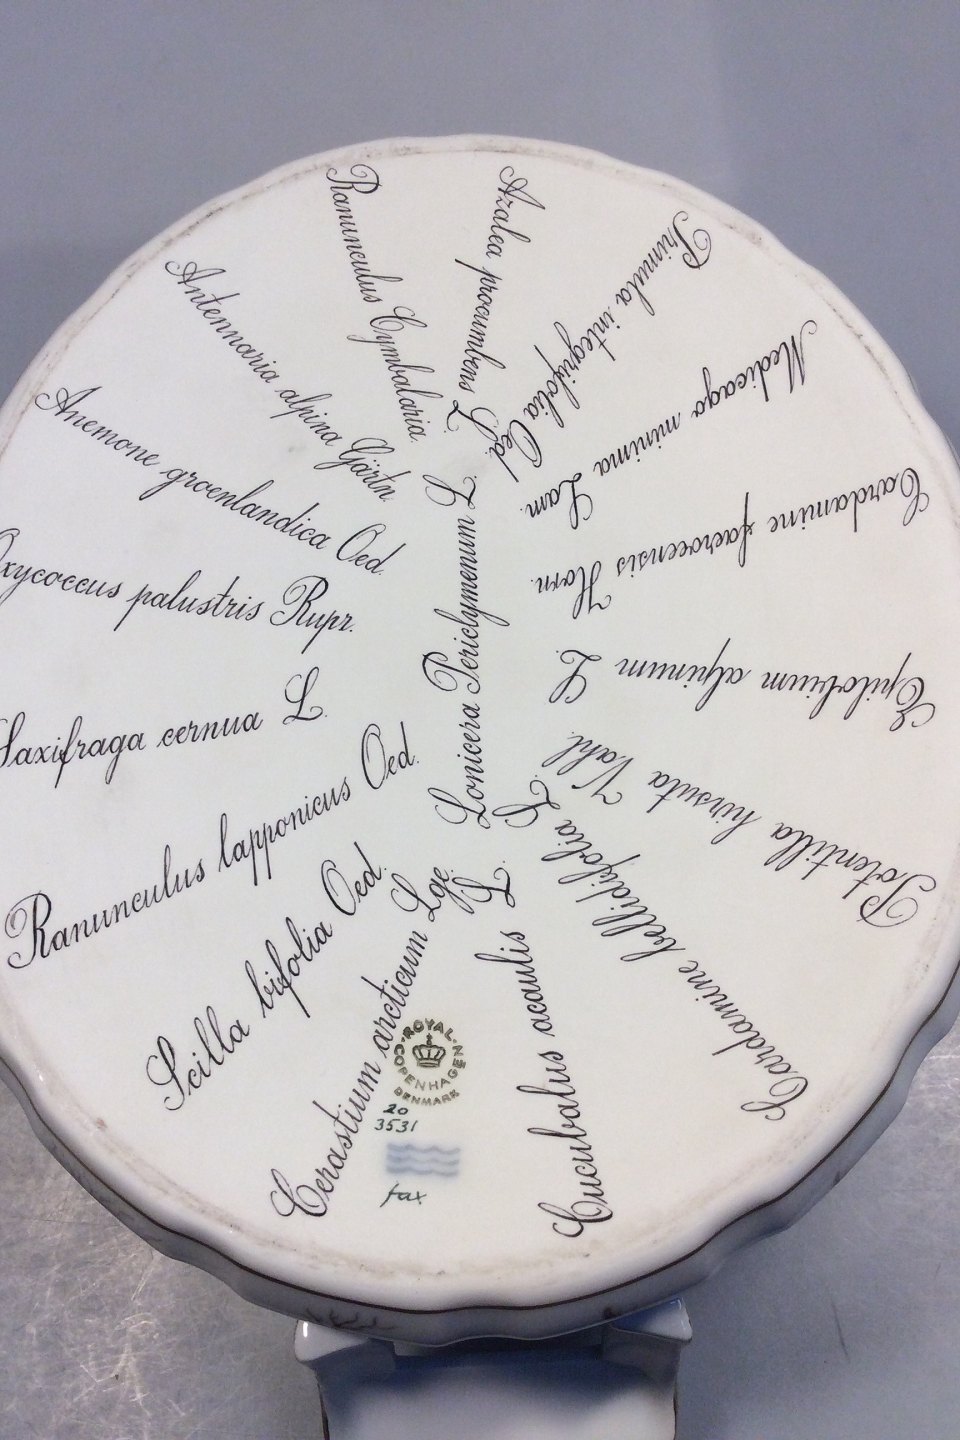 Ranunculus Cymbalaria.
Azalea procumbens L.
Primula integrifolia Oed.
Medicago minima Lam.
Cardamine faeroensis Horn.
Epilobium alpinum L.
Potentilla hirsuta Vahl.
Cardamine bellidifolia L.
Cucubalus acaulis L.
Cerastium arcticum Lge.
Scilla bifolia Oed.
Ranunculus lapponicus Oed.
Saxifraga cernua L.
Oxycoccus palustris Rupr.
Anemone groenlandica Oed.
Antennaria alpina Gärtn.
Lonicera Periclymenum L.
ROYAL COPENHAGEN
DENMARK
20
3531
fax